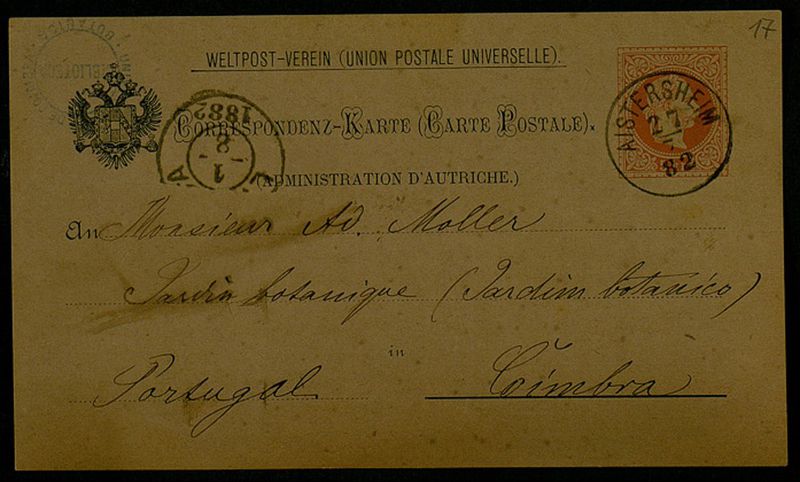 17
WELTPOST-VEREIN (UNION POSTALE UNIVERSELLE).
CORRESPONDENZ-KARTE (CARTE POSTALE).
(ADMINISTRATION D'AUTRICHE.)
AISTERSHEIM
27
7
82
1882
8
1
An Monsieur Ad. Moller
Jardin botanique (Jardim botanico)
in
Portugal Coimbra